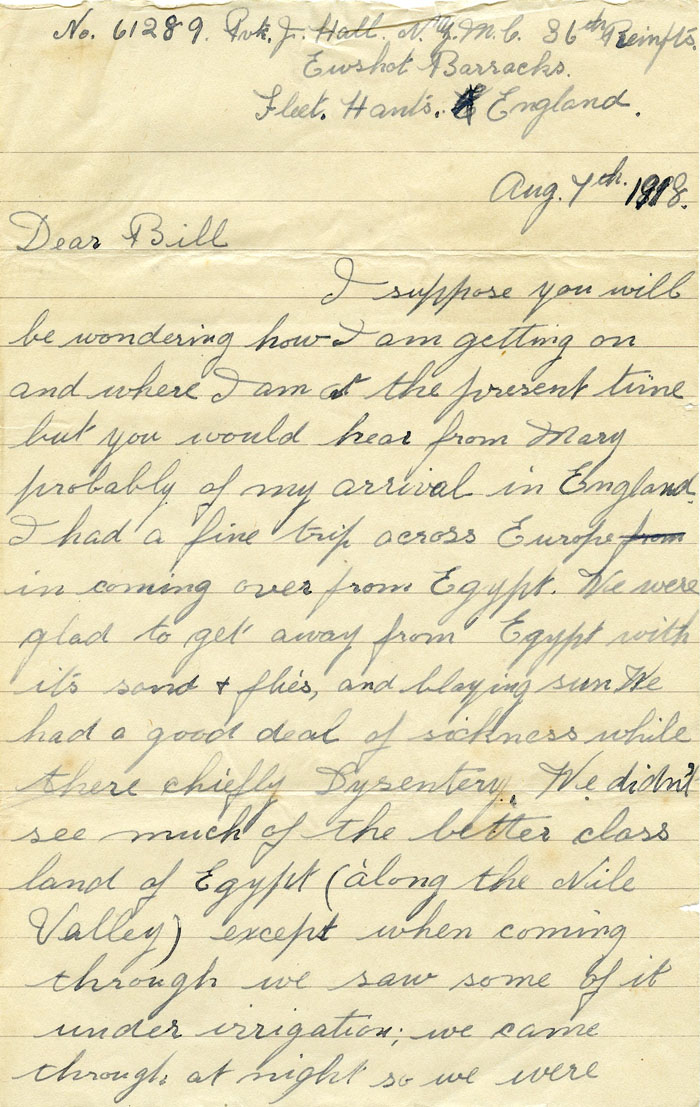 No. 61289. Pvt. J. Hall. N.Z.M.C. 36th Reinfts.
Ewshot Barracks.
Fleet. Hants. England.
Aug. 7th. 1918.
Dear Bill
I suppose you will
be wondering how I am getting on
and where I am at the present time
but you would hear from Mary
probably of my arrival in England.
I had a fine trip across Europe from
in coming over from Egypt. We were
glad to get away from Egypt with
it's sand + flies, and blazing sun We
had a good deal of sickness while
there chiefly Dysentery. We didn't
see much of the better class
land of Egypt (along the Nile
Valley) except when coming
through we saw some of it
under irrigation; we came
through at night so we were